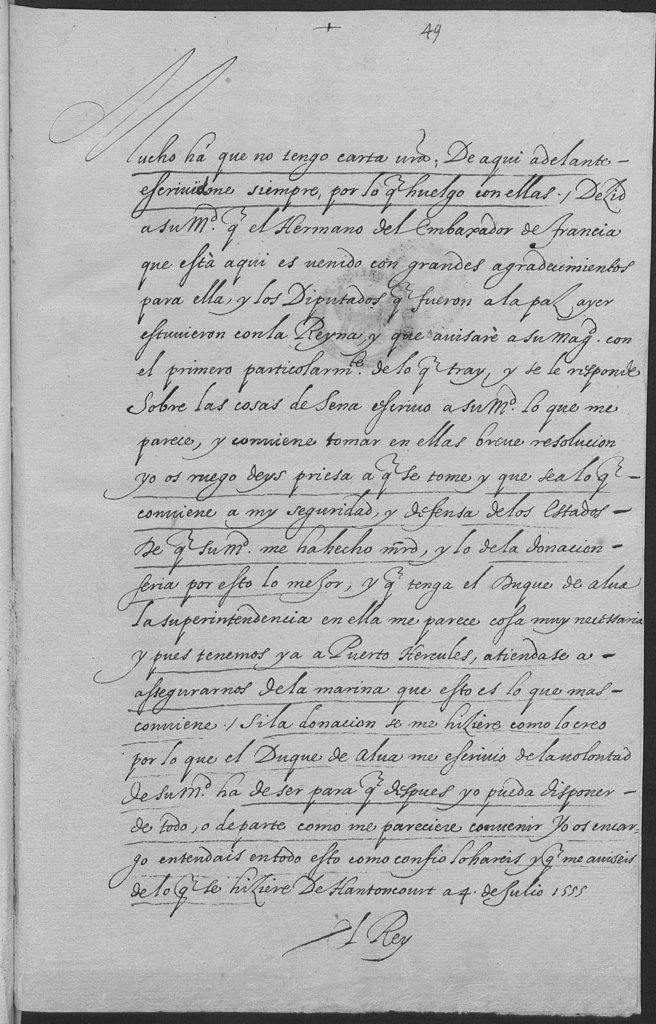 49
Mucho há que no tengo carta vrã; De aqui adelante-
escriuidme siempre, por lo q̃ huelgo con ellas ./ Dezid
a su Mᵈ. q̃ el Hermano del Embaxador de francia
que està aqui es uenido con grandes agradecimientos
para ella, y los Diputados q̃ fueron a la paz, ayer
estuuieron con la Reyna, y que auisarè a su magᵈ. con
el primero particolarmᵗᵉ. de lo q̃ tray, y se le responde
Sobre las cosas de Sena escriuo a su Mᵈ. lo que me
parece, y conuiene tomar en ellas breue resolucion
yo os ruego deys priesa a q̃ se tome y que sea lo q̃-
conuiene a my seguridad, y defensa de los Estados-
De q̃ su Mᵈ. me ha hecho mrd̃, y lo de la donacion-
seria por esto lo mejor, y q̃ tenga el Duque de alua
la superintendencia en ella me parece cosa muy necessaria
y pues tenemos ya a Puerto Hercules, atiendase a-
assegurarnos de la marina que esto es lo que mas-
conuiene ./ Si la donacion se me hiziere como lo creo
por lo que el Duque de Alua me escriuio de la uolontad
de su Mᵈ ha de ser para q̃ despues yo pueda disponer-
de todo, o de parte como me pareciere conuenir yo os encar-
go entendais en todo esto como confio lo hareis y q̃ me auiseis
de lo q̃ se hiziere De Hantoncourt a 4. de Julio 1555
El Rey